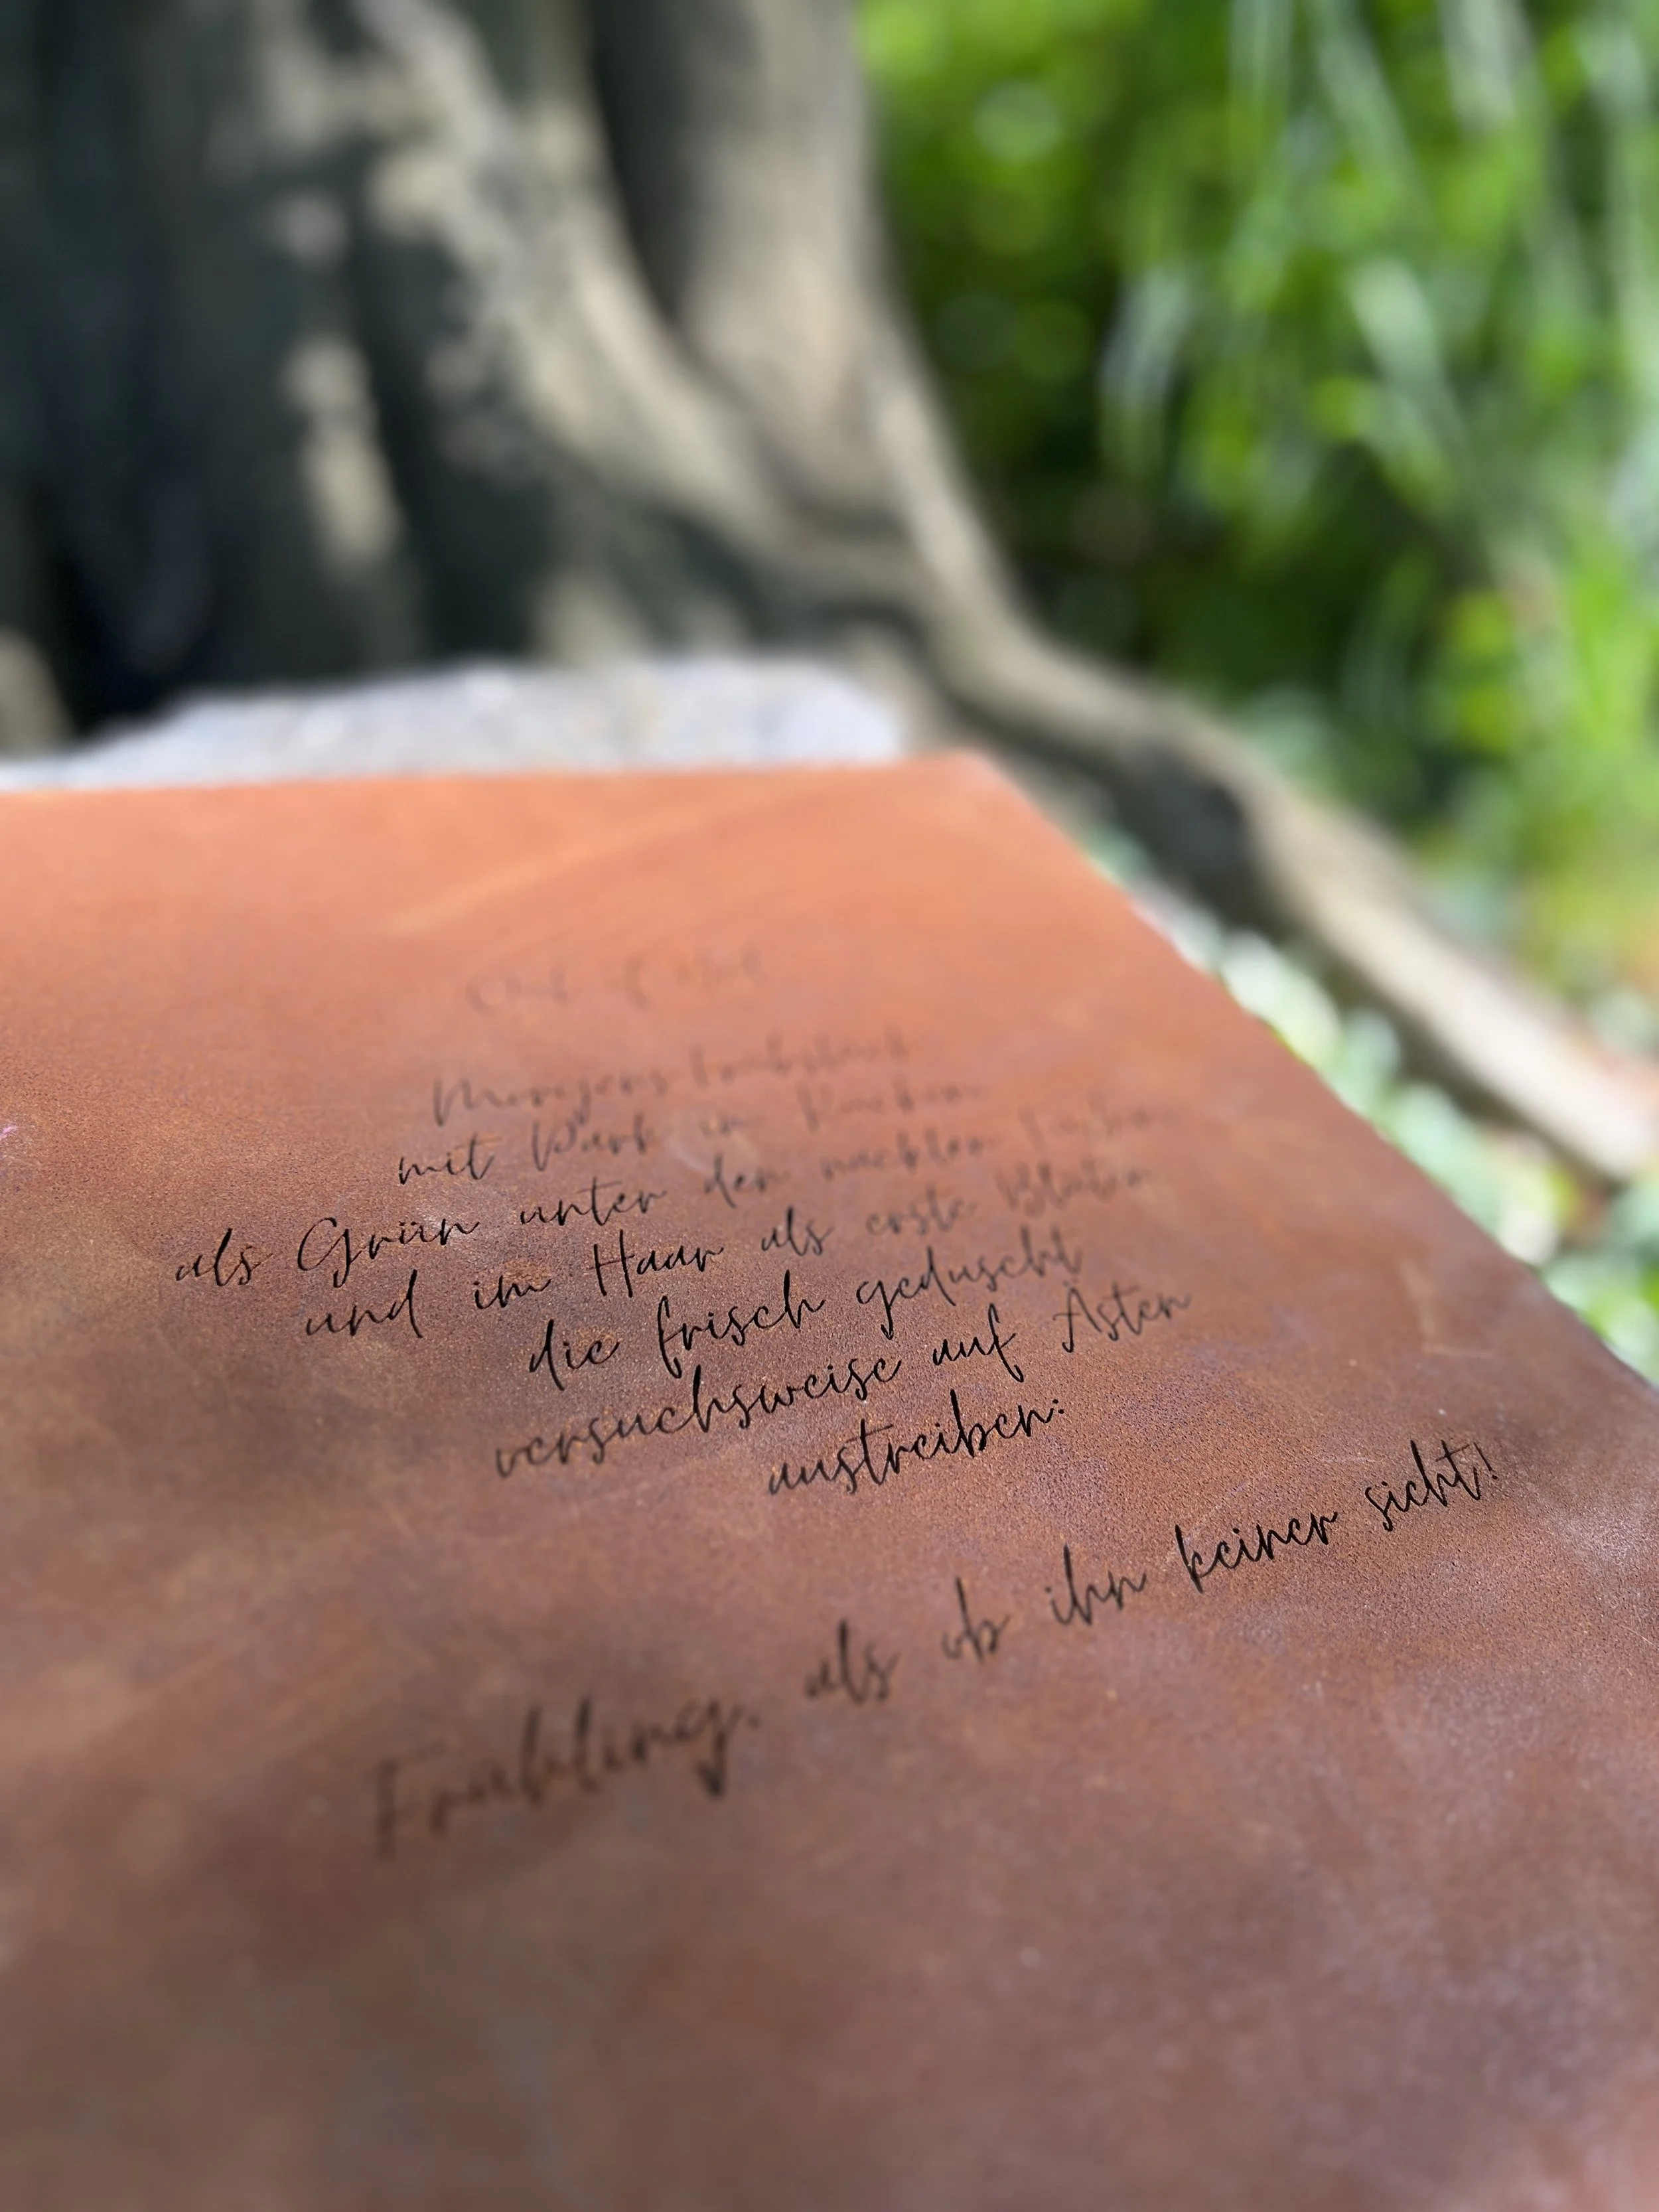 mit Park im
als Grün unter den nackten
und im Haar als erste Blüten
die frisch geduscht
versuchsweise auf Ästen
austreiben:
Frühling, als ob ihn keiner sieht!